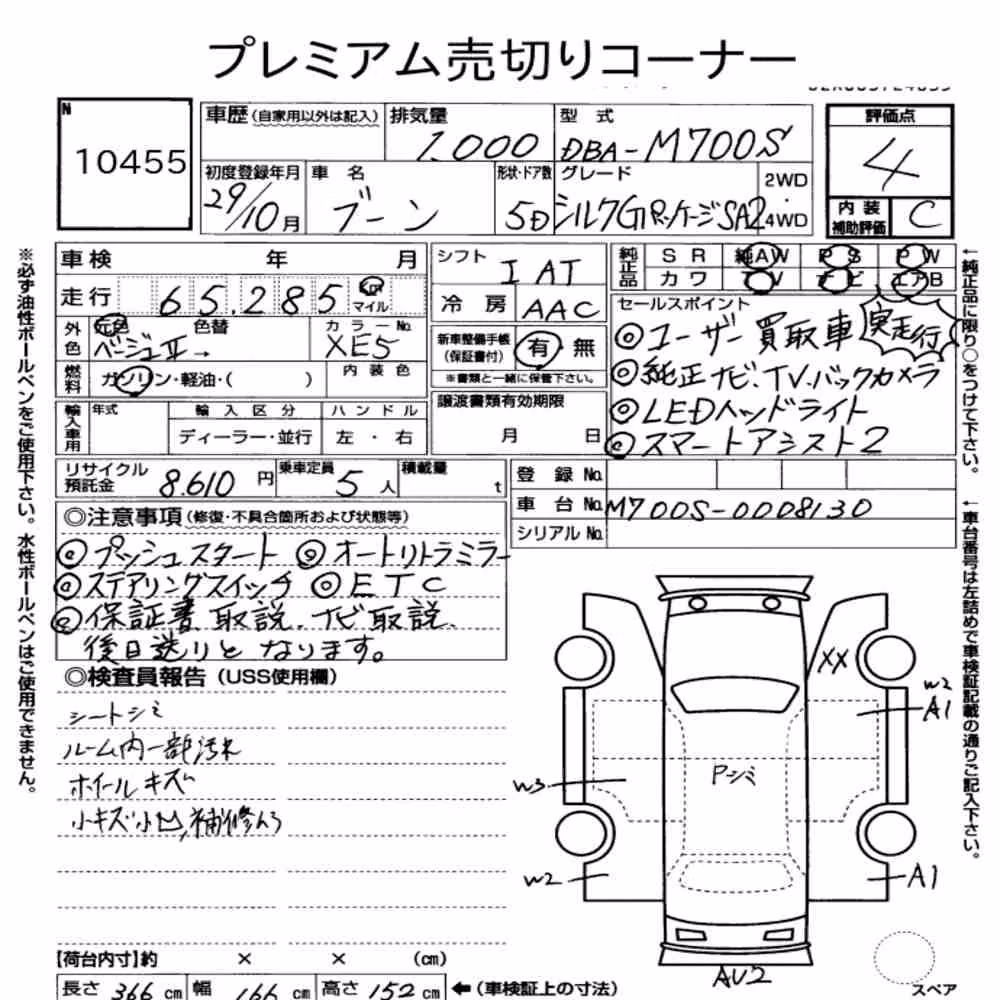 プレミアム売切りコーナー
N
10455
車歴 (自家用以外は記入)
排気量
1.000
型式
DBA-M700S
評価点
4
内装補助評価
C
初度登録年月
29/10月
車名
ブーン
形状・ドア数
5D
グレード
シルクGパッケージSA2
2WD
・
4WD
車検 年 月
走行 65.285 km マイル
外色
元色 色替
ベージュⅡ→
カラーNo.
XE5
燃料
ガソリン・軽油・( )
内装色
輸入車用
年式
輸入区分
ディーラー・並行
ハンドル
左・右
リサイクル預託金
8.610円
乗車定員
5人
積載量
t
シフト
IAT
冷房
AAC
新車整備手帳
(保証書付)
有・無
※書類と一緒に保管下さい。
譲渡書類有効期限
月 日
純正品
SR 純AW PS PW
カワ TV ナビ エアB
セールスポイント
◎ユーザー買取車 実走行
◎純正ナビ、TV.バックカメラ
◎LEDヘッドライト
◎スマートアシスト2
登録No.
車台No. M700S-0008130
シリアルNo.
◎注意事項 (修復・不具合箇所および状態等)
◎プッシュスタート ◎オートリトラミラー
◎ステアリングスイッチ ◎ETC
◎保証書 取説、ナビ取説、
後日送りとなります。
◎検査員報告 (USS使用欄)
シートシミ
ルーム内一部汚れ
ホイールキズ
小キズ小凹,補修有
XX
W2
A1
W3
Pシミ
W2
A1
AU2
スペア
【荷台内寸】約 × × (cm)
長さ 366 cm 幅 166 cm 高さ 152 cm ←(車検証上の寸法)
※必ず油性ボールペンをご使用下さい。水性ボールペンはご使用できません。
←純正品に限り○をつけて下さい。
←車台番号は左詰めで車検証記載の通りご記入下さい。